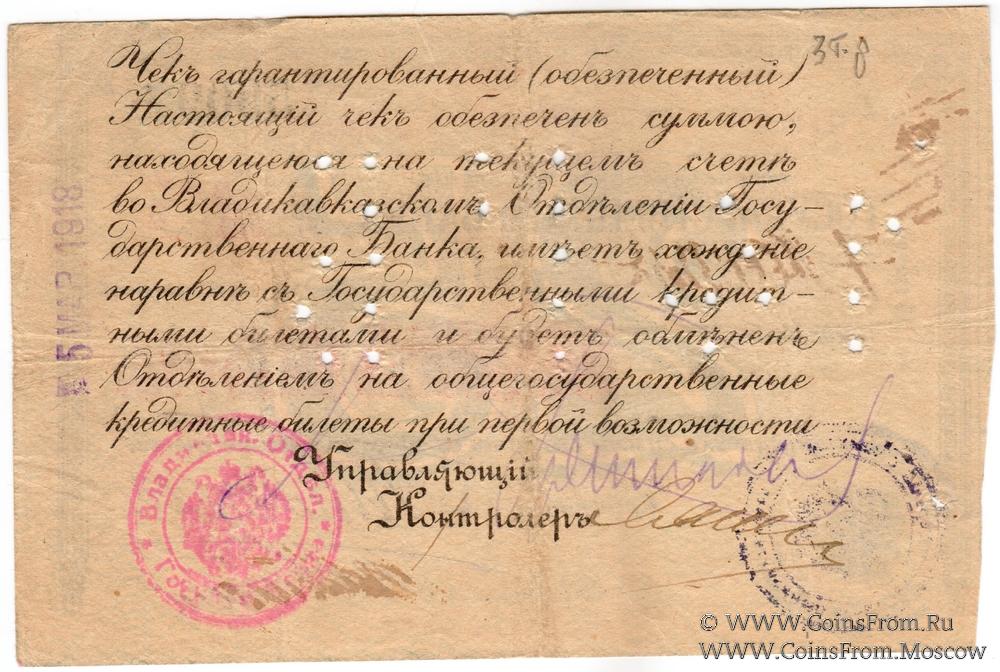 Чекъ гарантированный (обезпеченный)
Настоящій чекъ обезпеченъ суммою,
находящеюся на текущемъ счетѣ
во Владикавказскомъ Отдѣленіи Госу-
дарственнаго Банка, имѣетъ хожденіе
наравнѣ съ Государственными кредит-
ными билетами и будетъ обмѣненъ
Отдѣленіемъ на общегосударственные
кредитные билеты при первой возможности
Управляющій
Контролеръ
5 МАР 1918
© WWW.CoinsFrom.Ru
WWW.CoinsFrom.Moscow